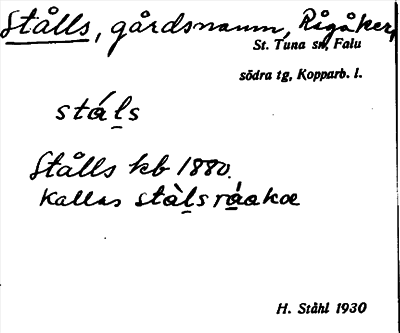 Stålls, gårdsnamn, Rågåker,
St. Tuna sn, Falu
södra tg, Kopparb. l.
stá̀l̠s
Stålls kb 1880.
Kallas stàl̠s ráakoe
H. Ståhl 1930